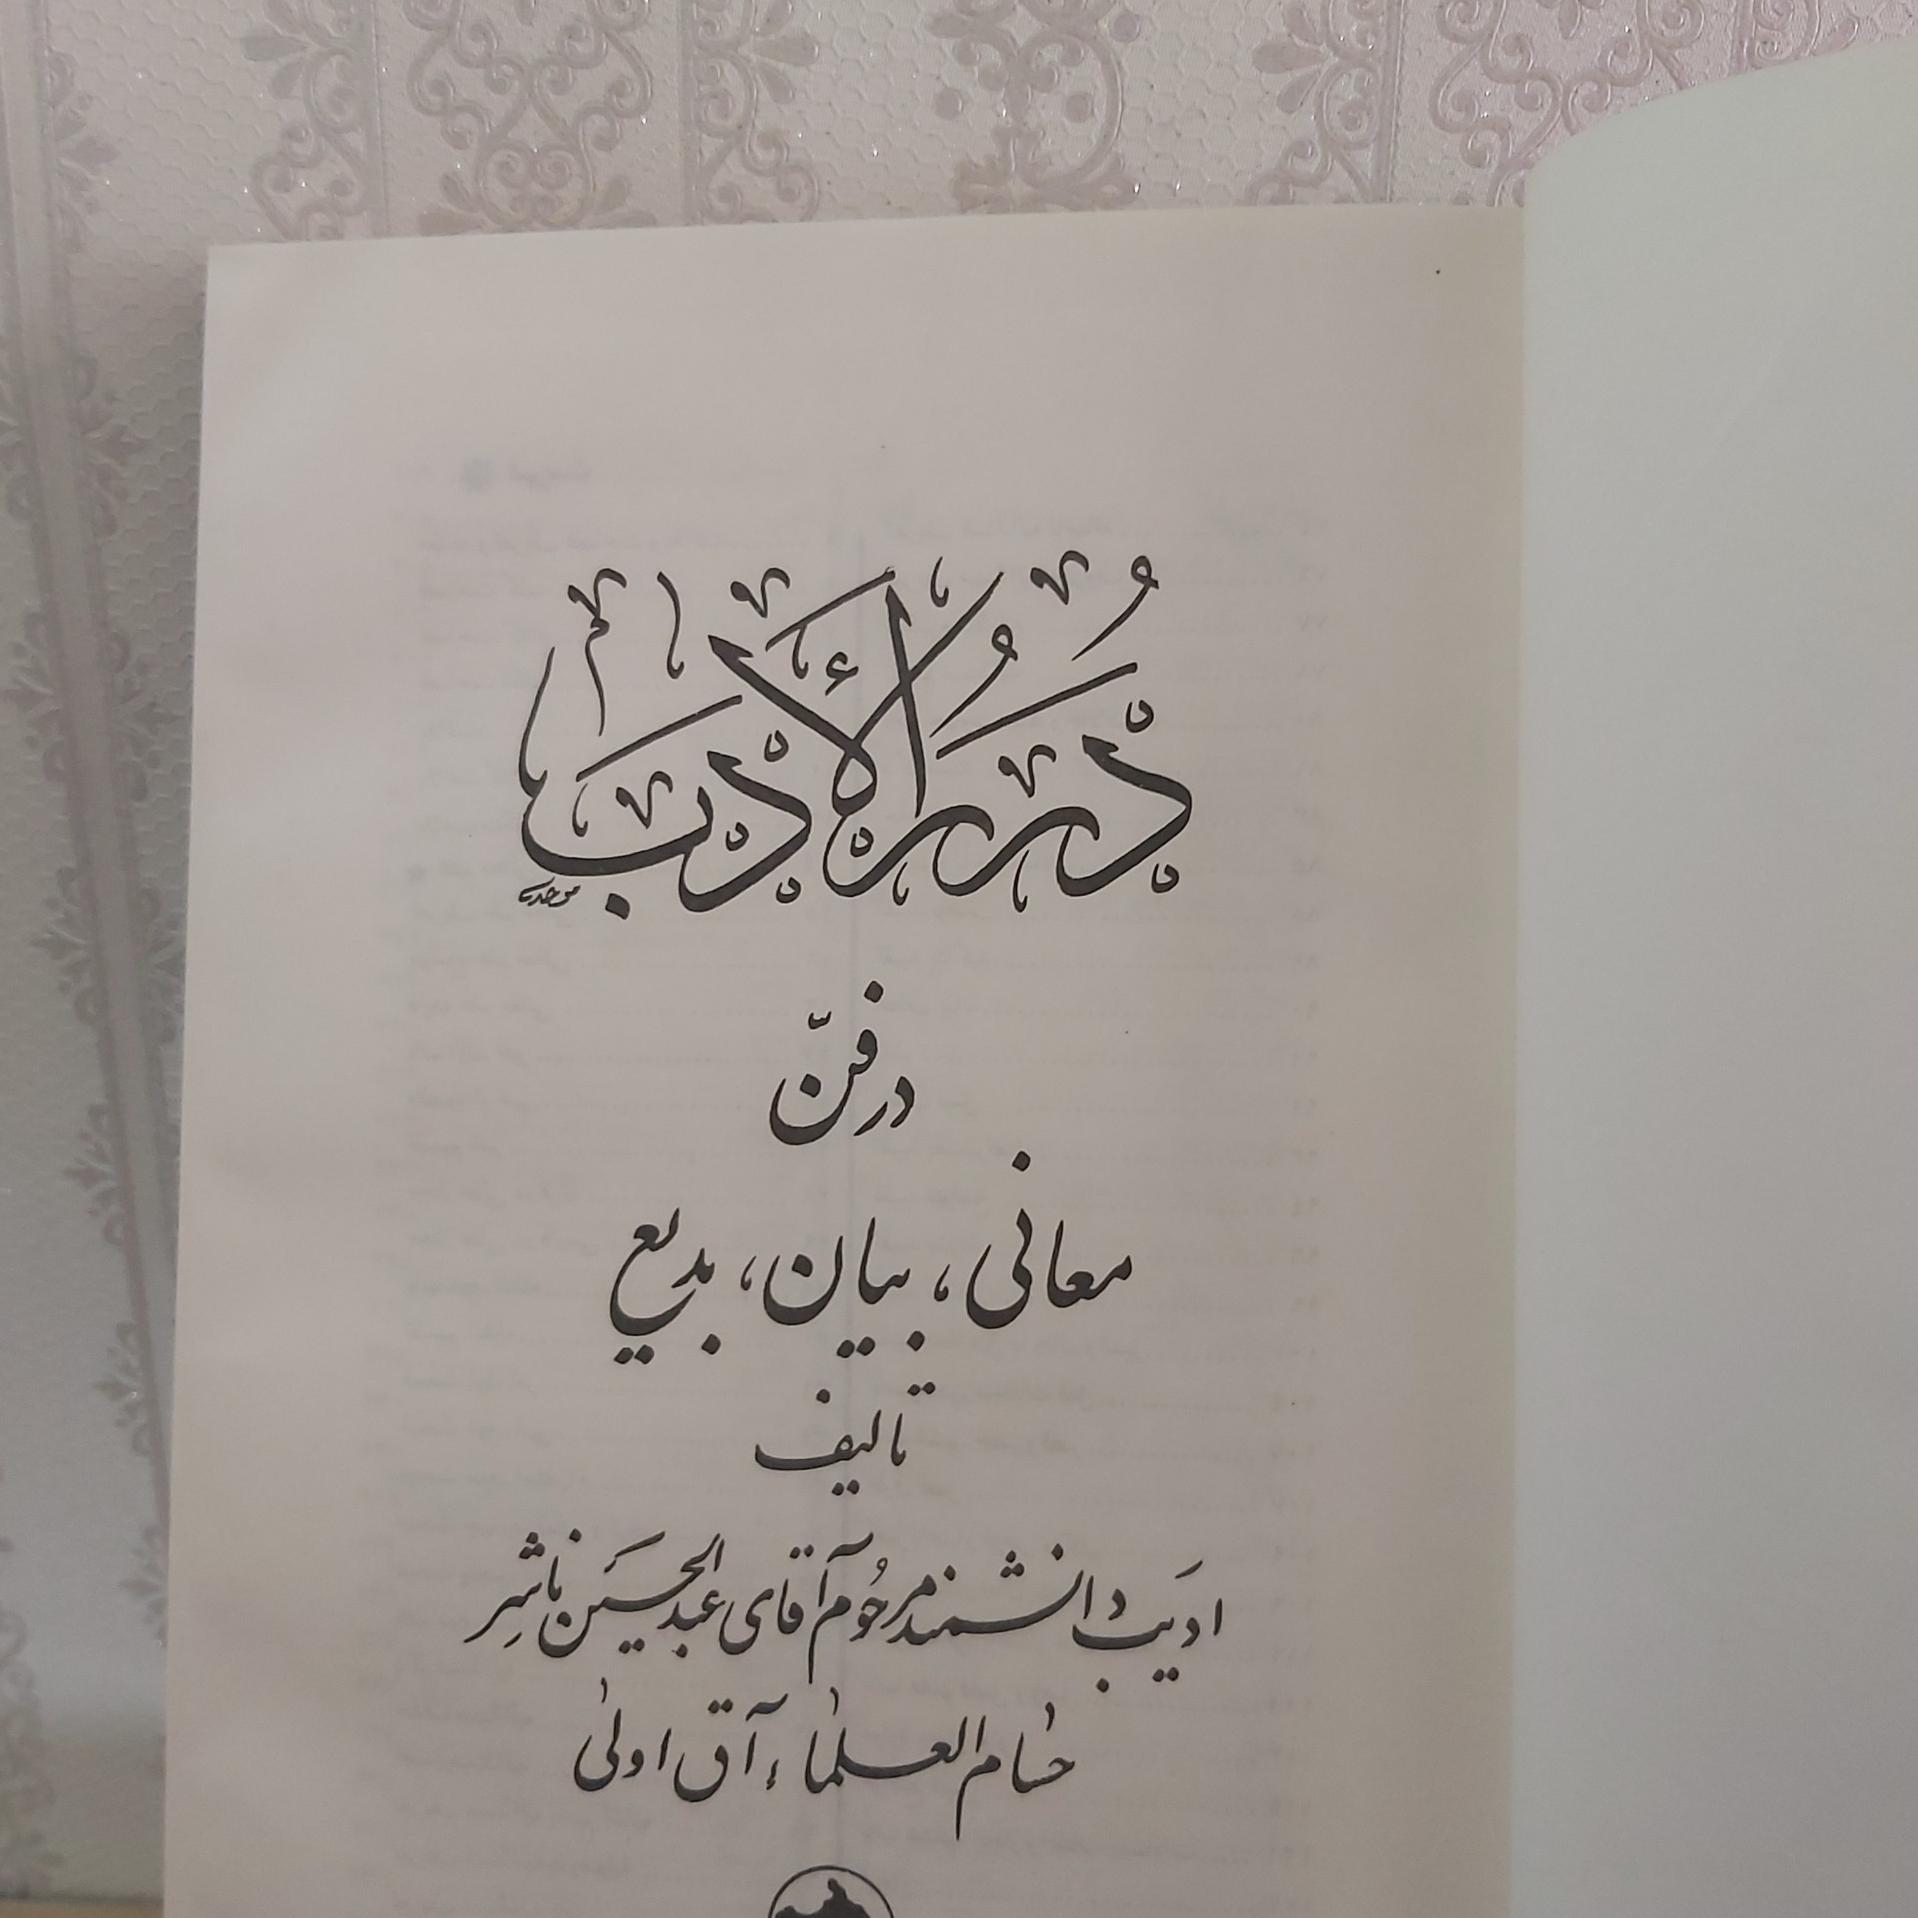 دُرَرُ الْأَدَب
موحد
در فنّ
معانی، بیان، بدیع
تالیف
ادیب دانشمند مرحُوم آقای عبدالحسین ناشِر
حسام العلماء آق اولیٰ